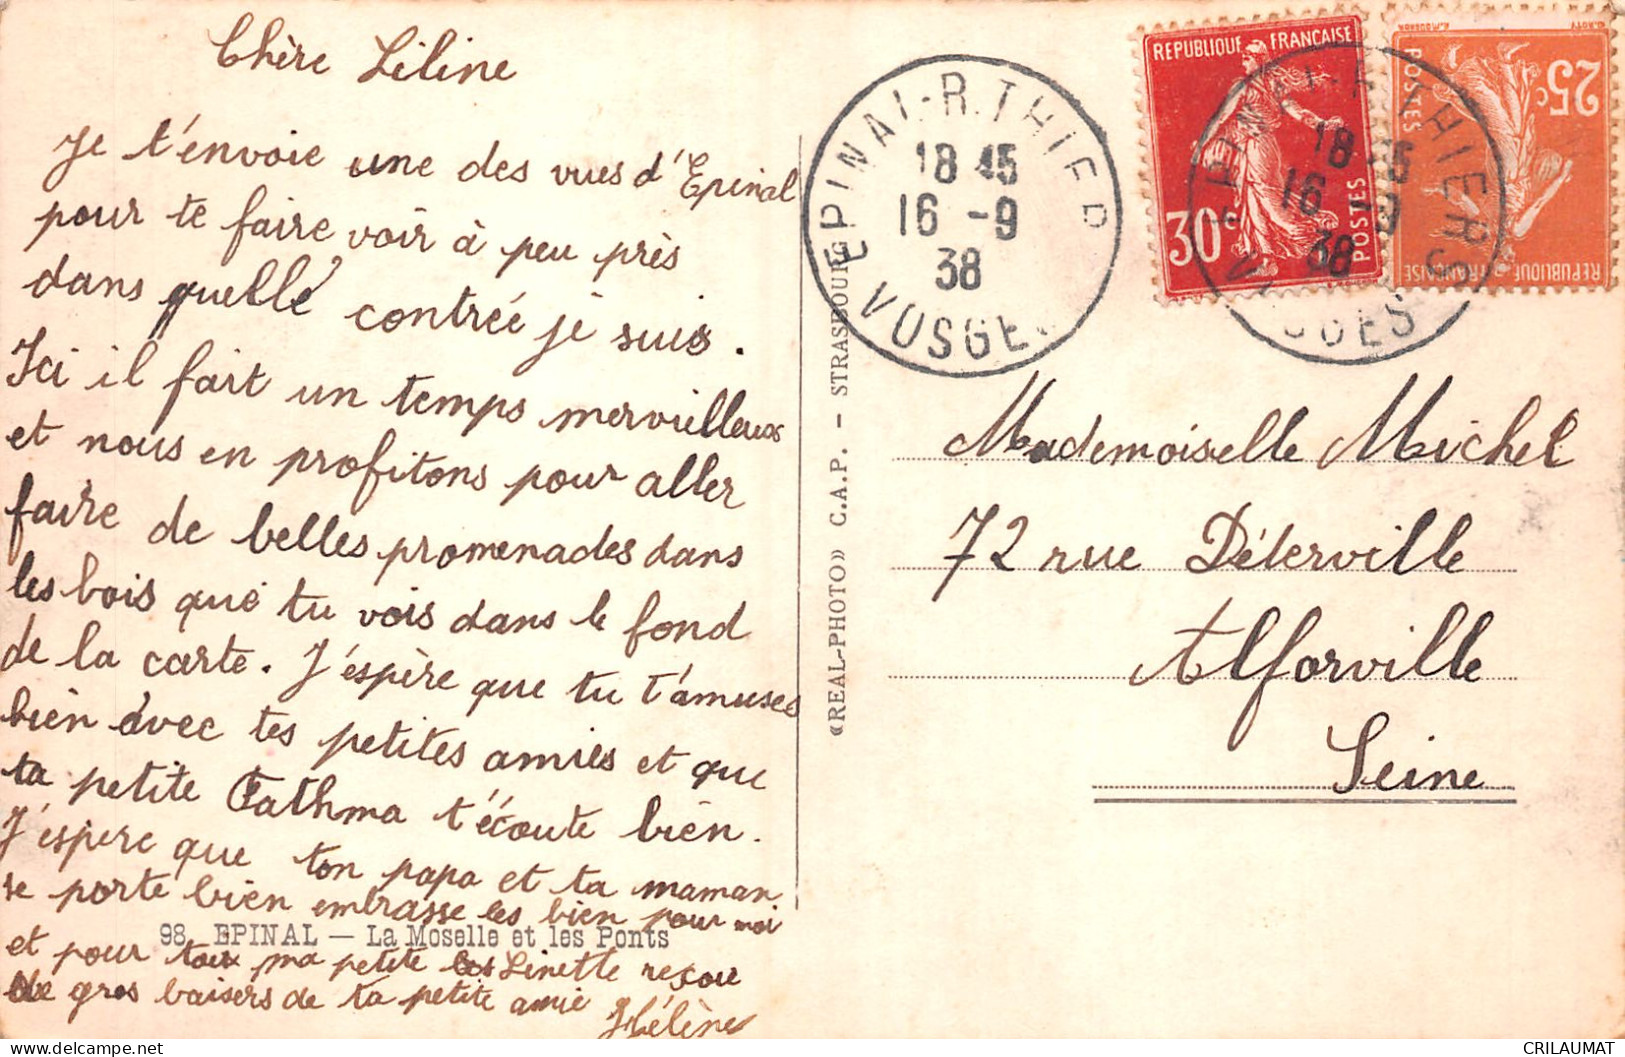 Chère Liline
Je t'envoie une des vues d'Epinal
pour te faire voir à peu près
dans quelle contrée je suis.
Ici il fait un temps merveilleux
et nous en profitons pour aller
faire de belles promenades dans
les bois que tu vois dans le fond
de la carte. J'espère que tu t'amuses
bien avec tes petites amies et que
ta petite Fathma t'écoute bien.
J'espère que ton papa et ta maman
se porte bien embrasse les bien pour moi
98. EPINAL — La Moselle et les Ponts
et pour ma petite Linette reçoie
de gros baisers de ta petite amie
Hélène
«REAL-PHOTO» C.A.P. - STRASBOURG
EPINAL-R.THIERS
18 45
16 -9
38
VOSGES
REPUBLIQUE FRANÇAISE
30c
POSTES
REPUBLIQUE FRANÇAISE
25c
POSTES
EPINAL-R.THIERS
18 45
16 -9
38
VOSGES
Mademoiselle Michel
72 rue Déterville
Alforville
Seine
CRILAUMAT